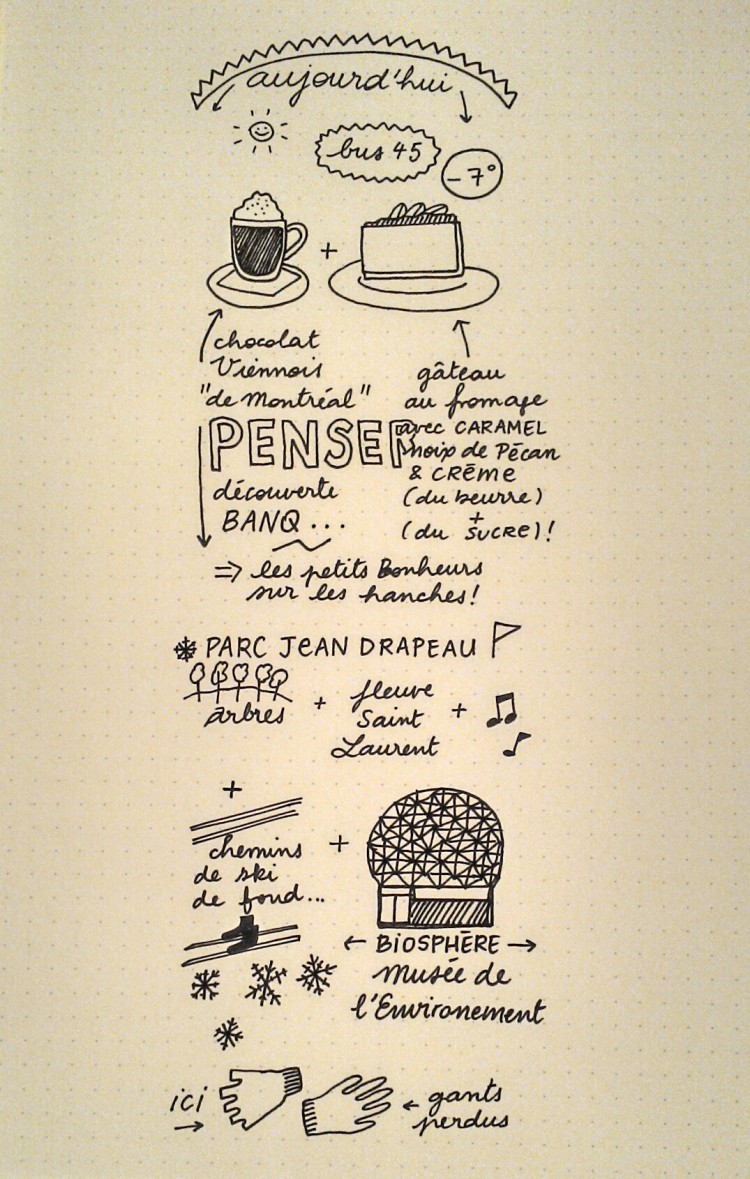 aujourd'hui
bus 45
-7°
+
chocolat
Viennois
"de Montréal"
gâteau
au fromage
avec CARAMEL
noix de Pēcan
& CRĒME
(du beurre)
+
(du SUCRE)!
PENSER
découverte
BANQ...
⇒ les petits Bonheurs
sur les hanches!
PARC JEAN DRAPEAU
arbres
+
fleuve
Saint
Laurent
+
+
chemins
de ski
de fond...
+
← BIOSPHĒRE →
Musée de
l'Environement
ici
→
← gants
perdus